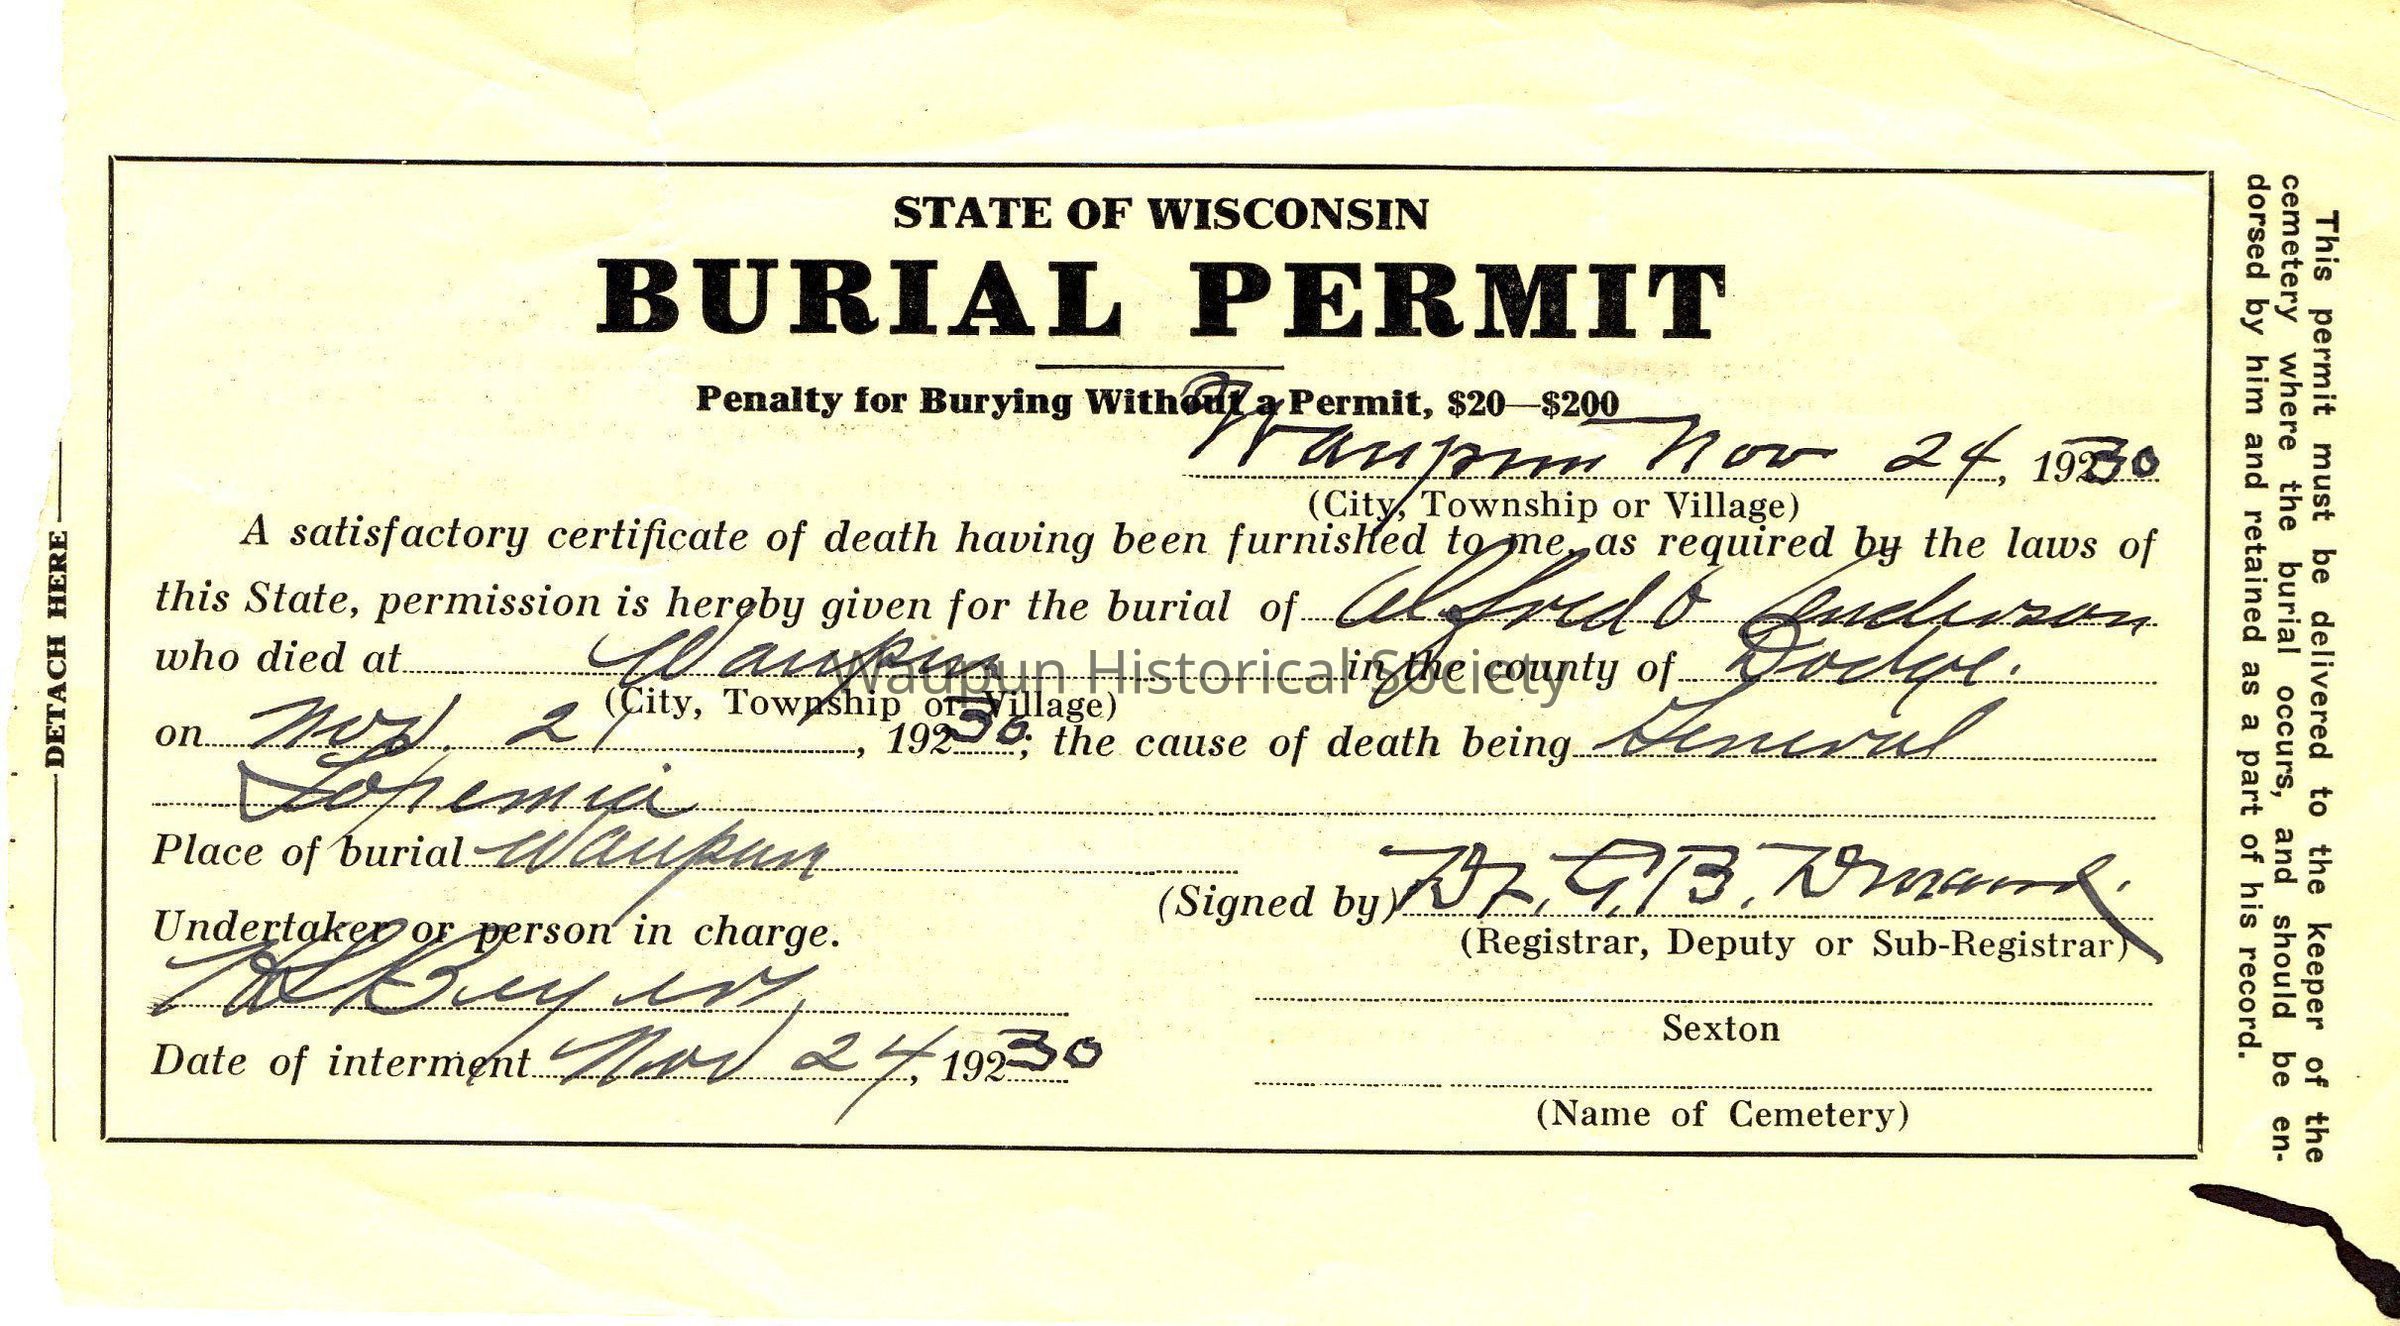 STATE OF WISCONSIN
BURIAL PERMIT
Penalty for Burying Without a Permit, $20—$200
Waupun Nov 24, 19230
(City, Township or Village)
A satisfactory certificate of death having been furnished to me, as required by the laws of
this State, permission is hereby given for the burial of Alfred O Anderson
who died at Waupun in the county of Dodge.
(City, Township or Village)
on Nov. 21, 19230; the cause of death being General
Place of burial Waupun
(Signed by) Dr. G. B.
Undertaker or person in charge.
(Registrar, Deputy or Sub-Registrar)
Sexton
Date of interment Nov 24, 19230
(Name of Cemetery)
DETACH HERE
This permit must be delivered to the keeper of the
cemetery where the burial occurs, and should be en-
dorsed by him and retained as a part of his record.
Waupun Historical Society